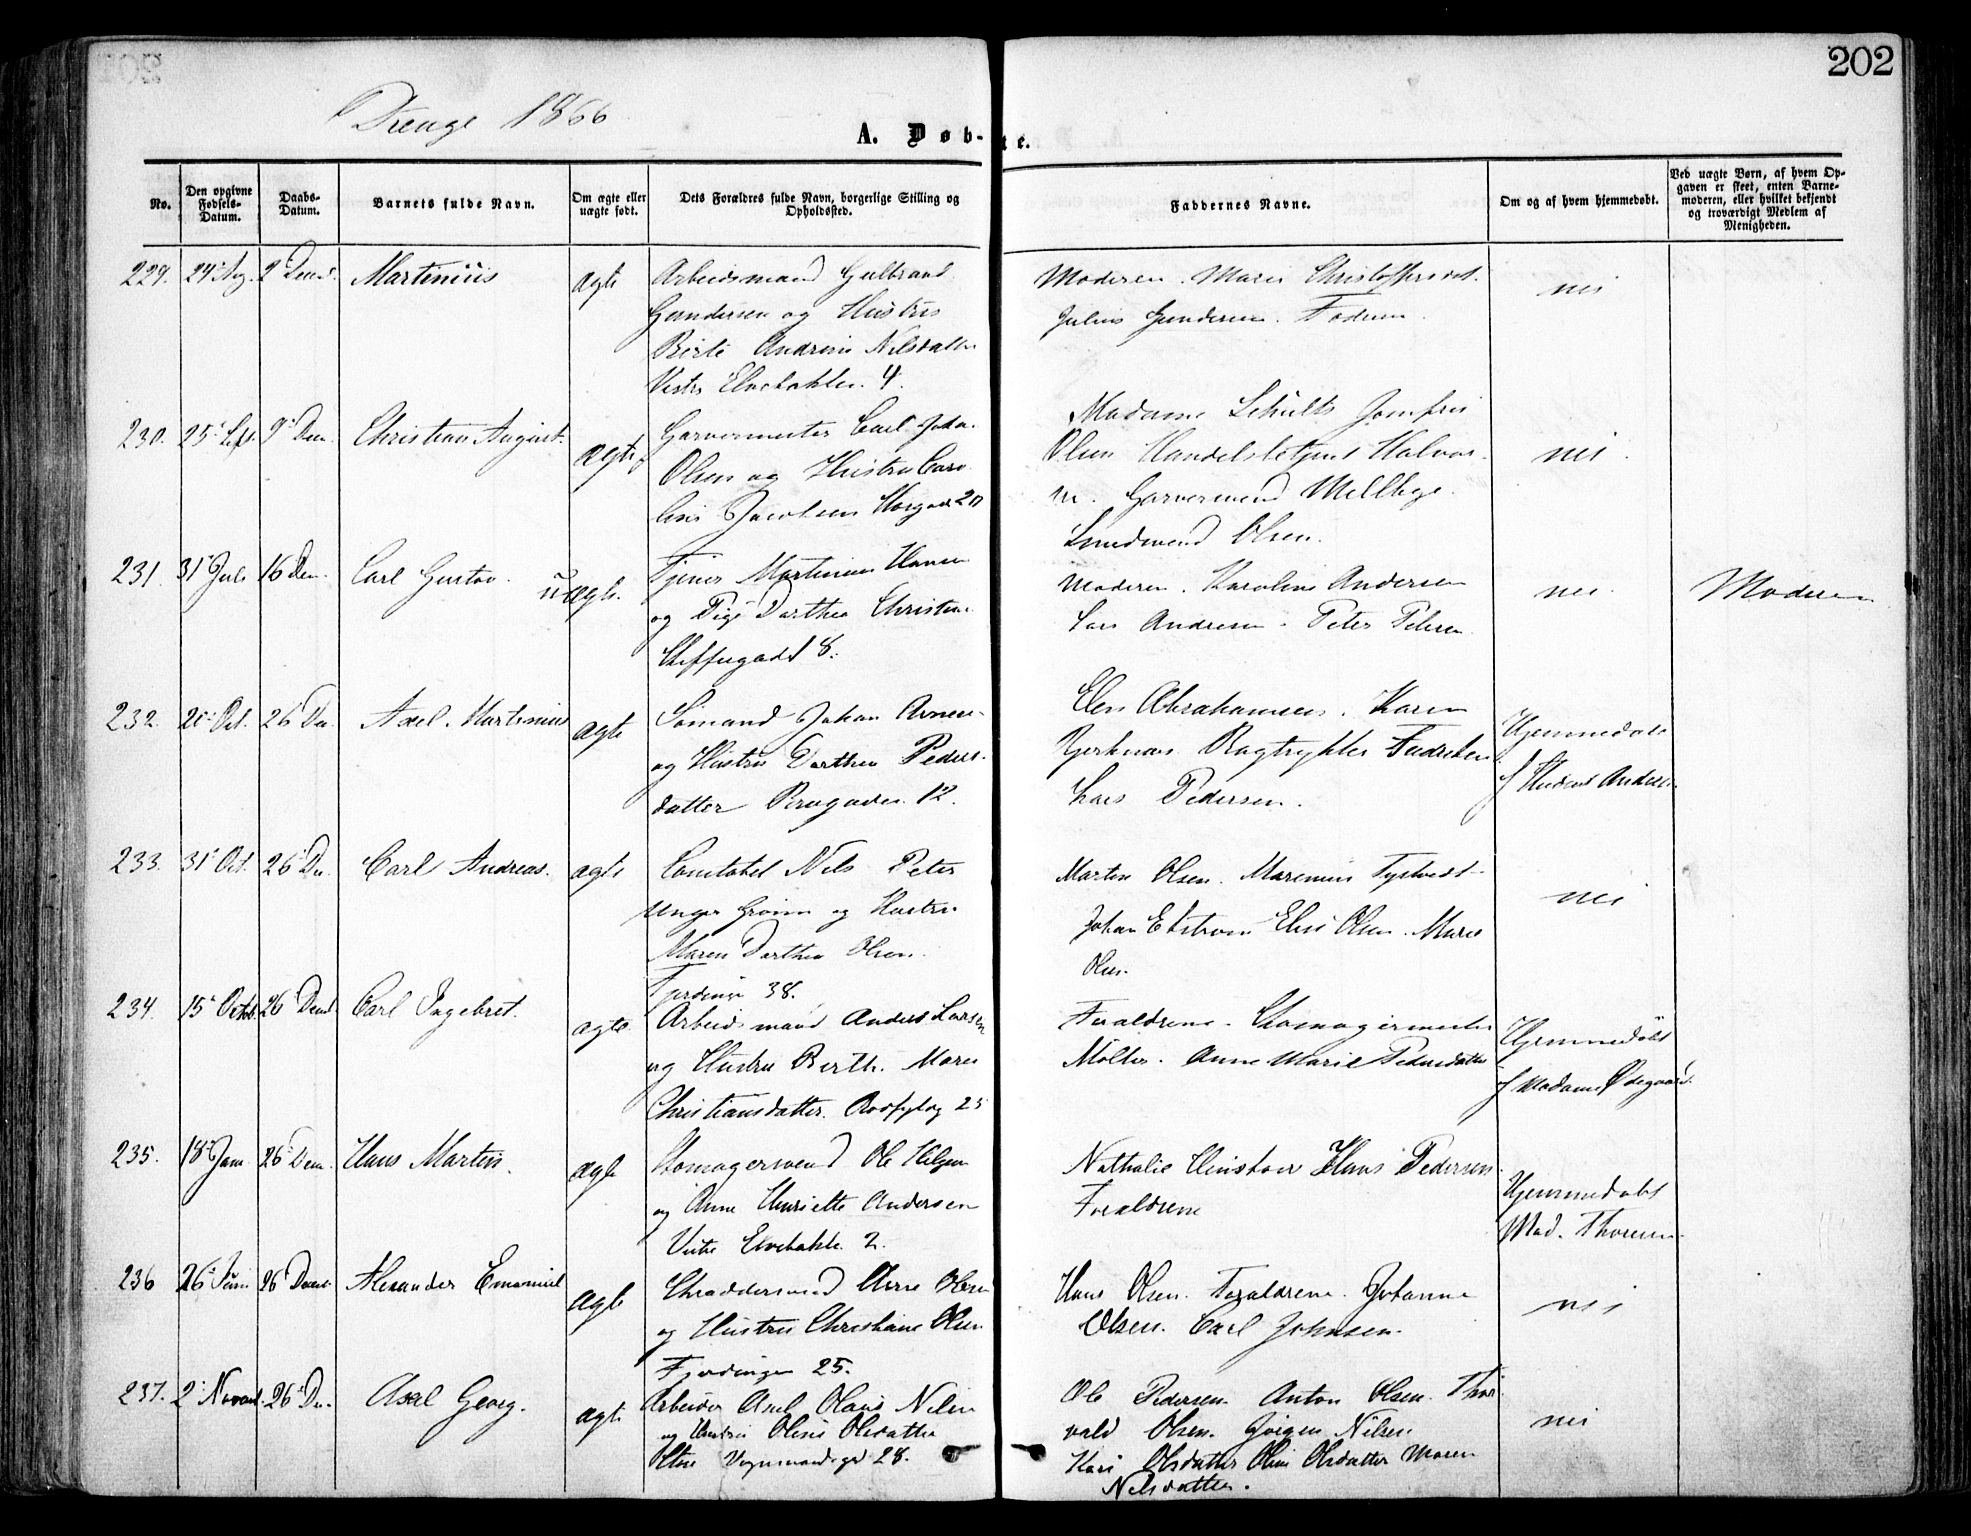 202
Drenge 1866
A. Døb-te.
No.
Den opgivne Fødsels-Datum.
Daabs-Datum.
Barnets fulde Navn.
Om ægte eller uægte født.
Dets Forældres fulde Navn, borgerlige Stilling og Opholdssted.
Faddernes Navne.
Om og af hvem hjemmedøbt.
Ved uægte Børn, af hvem Opgaven er skeet, enten Barnemoderen, eller hvilket bekjendt og troværdigt Medlem af Menigheden.
229. 24 Aug. 2 Decmb. Martinius ægte Arbeidsmand Gulbrand
Gundersen og Hustru
Birte Andrine Nilsdatter
Vestre Elvebakke. 4.
Moderen. Marie Christoffersdt.
Julius Gundersen. Faderen.
nei
230. 25 Sept. 9 Dem. Christian August. ægte Garvermester Carl Joha.
Olsen og Hustru Caro
line Jacobsen 20
Madame Schults Jomfru
Olsen Handelsbetjent Halvor
Garversvend Mellbye.
Smedsvend Olsen.
nei.
231. 31 Juli 16 Dem. Carl Gustav. uægte. Tjener Martinius Hansen
og Pige Dorthea Christen
8.
Moderen. Karoline Andersen
Lars Andersen. Peter Petersen
nei.
Moderen
232. Oct. 26 De. Axel. Martinius ægte Sømand Johan
og Hustru Dorthea Peders-
datter 12.
Elen Abrahamsen. Karen
Lars Pedersen.
Hjemmedøbt
af Andersen
233. 31 Oct. 26 De. Carl Andreas. ægte Constabel Nils Peter
Unger og Hustru
Maren Dorthea Olsen.
Fjerdingen 38.
Martin Olsen. Marenius
Johan Ekstrøm Elise Olsen. Marie
Olsen.
nei
234. 15 Octbr. 26 Decmb. Carl Ingebret. ægte Arbeidsmand Anders Larsen
og Hustru Berthe Marie
Christiansdatter. 25
Forældrene. Skomagermester
Møller. Anne Marie Pedersdatter
Hjemmedøbt
af Madame Ødegaard.
235. 18 Jan 26 Dem. Hans Martin. ægte Skomagersvend Ole
og Anne Henriette Andersen
Vestre Elvebakke. 2.
Nathalie Hans Pedersen.
Forældrene
Hjemmedøbt
Mad. Thoresen.
236 26 Juni 26 Decmb. Alexander Emanuel ægte Skræddersvend Arne Olsen
og Hustru Christiane Olsen
Fjerdingen 25.
Hans Olsen. Forældrene. Johanne
Olsen. Carl Johnsen.
nei
237. 2 Novemb. 26 De. Axel Georg. ægte Arbeider Axel Olaus Nilsen
og Hustru Oline Olsdatter
Vognmandsgd 28.
Ole Pedersen. Anton Olsen. Thor
vald Olsen. Jørgen Nilsen
Kari Olsdatter Oline Olsdatter Maren
Nilsdatter.
nei